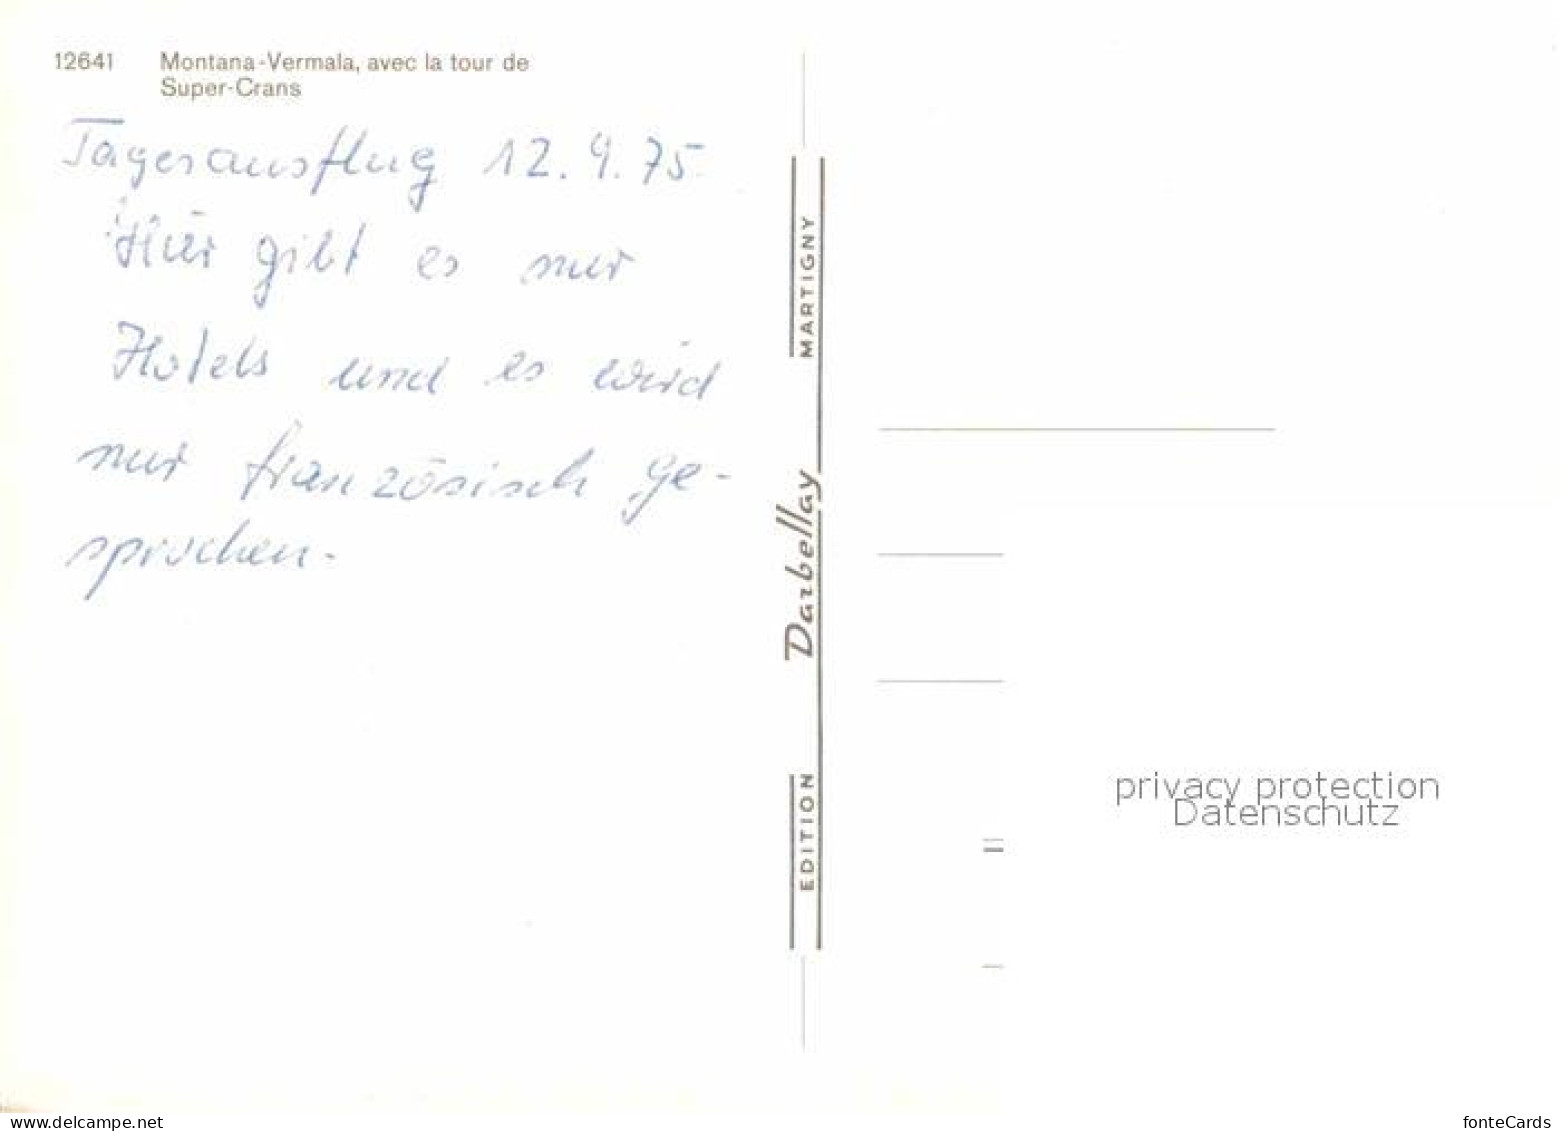 12641 Montana-Vermala, avec la tour de
Super-Crans
Tagesausflug 12.9.75.
Hier gibt es nur
Hotels und es wird
nur französisch ge-
sprochen.
EDITION Darbellay MARTIGNY
privacy protection
Datenschutz
www.delcampe.net
fonteCards